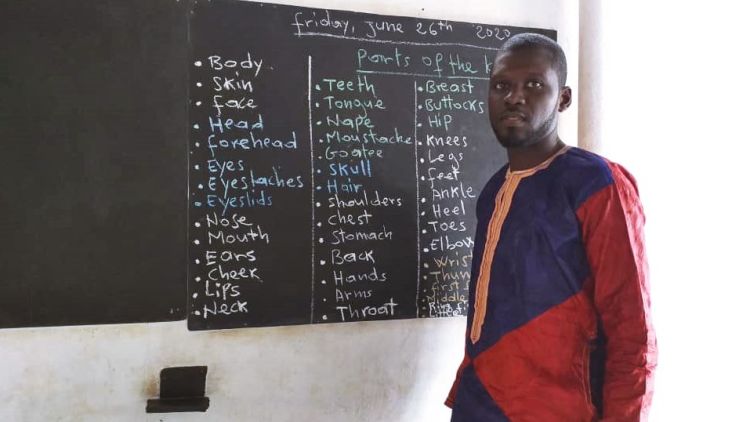 friday, june 26th 2020
Parts of the
Body
Skin
face
Head
forehead
Eyes
Eyestaches
Eyeslids
Nose
Mouth
Ears
Cheek
Lips
Neck
Teeth
Tongue
Nape
Moustache
Goatee
Skull
Hair
shoulders
chest
Stomach
Back
Hands
Arms
Throat
Breast
Buttocks
Hip
Knees
Legs
feet
Ankle
Heel
Toes
Elbow
Wrist
Thum
first
Middle